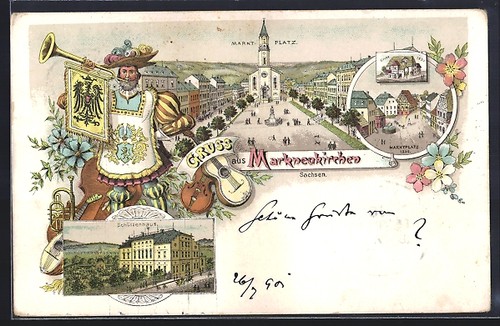 MARKT PLATZ.
GRUSS
aus Markneukirchen
Sachsen.
MARKTPLATZ
Schützenhaus
Schöne Grüße von
?
26/7 901